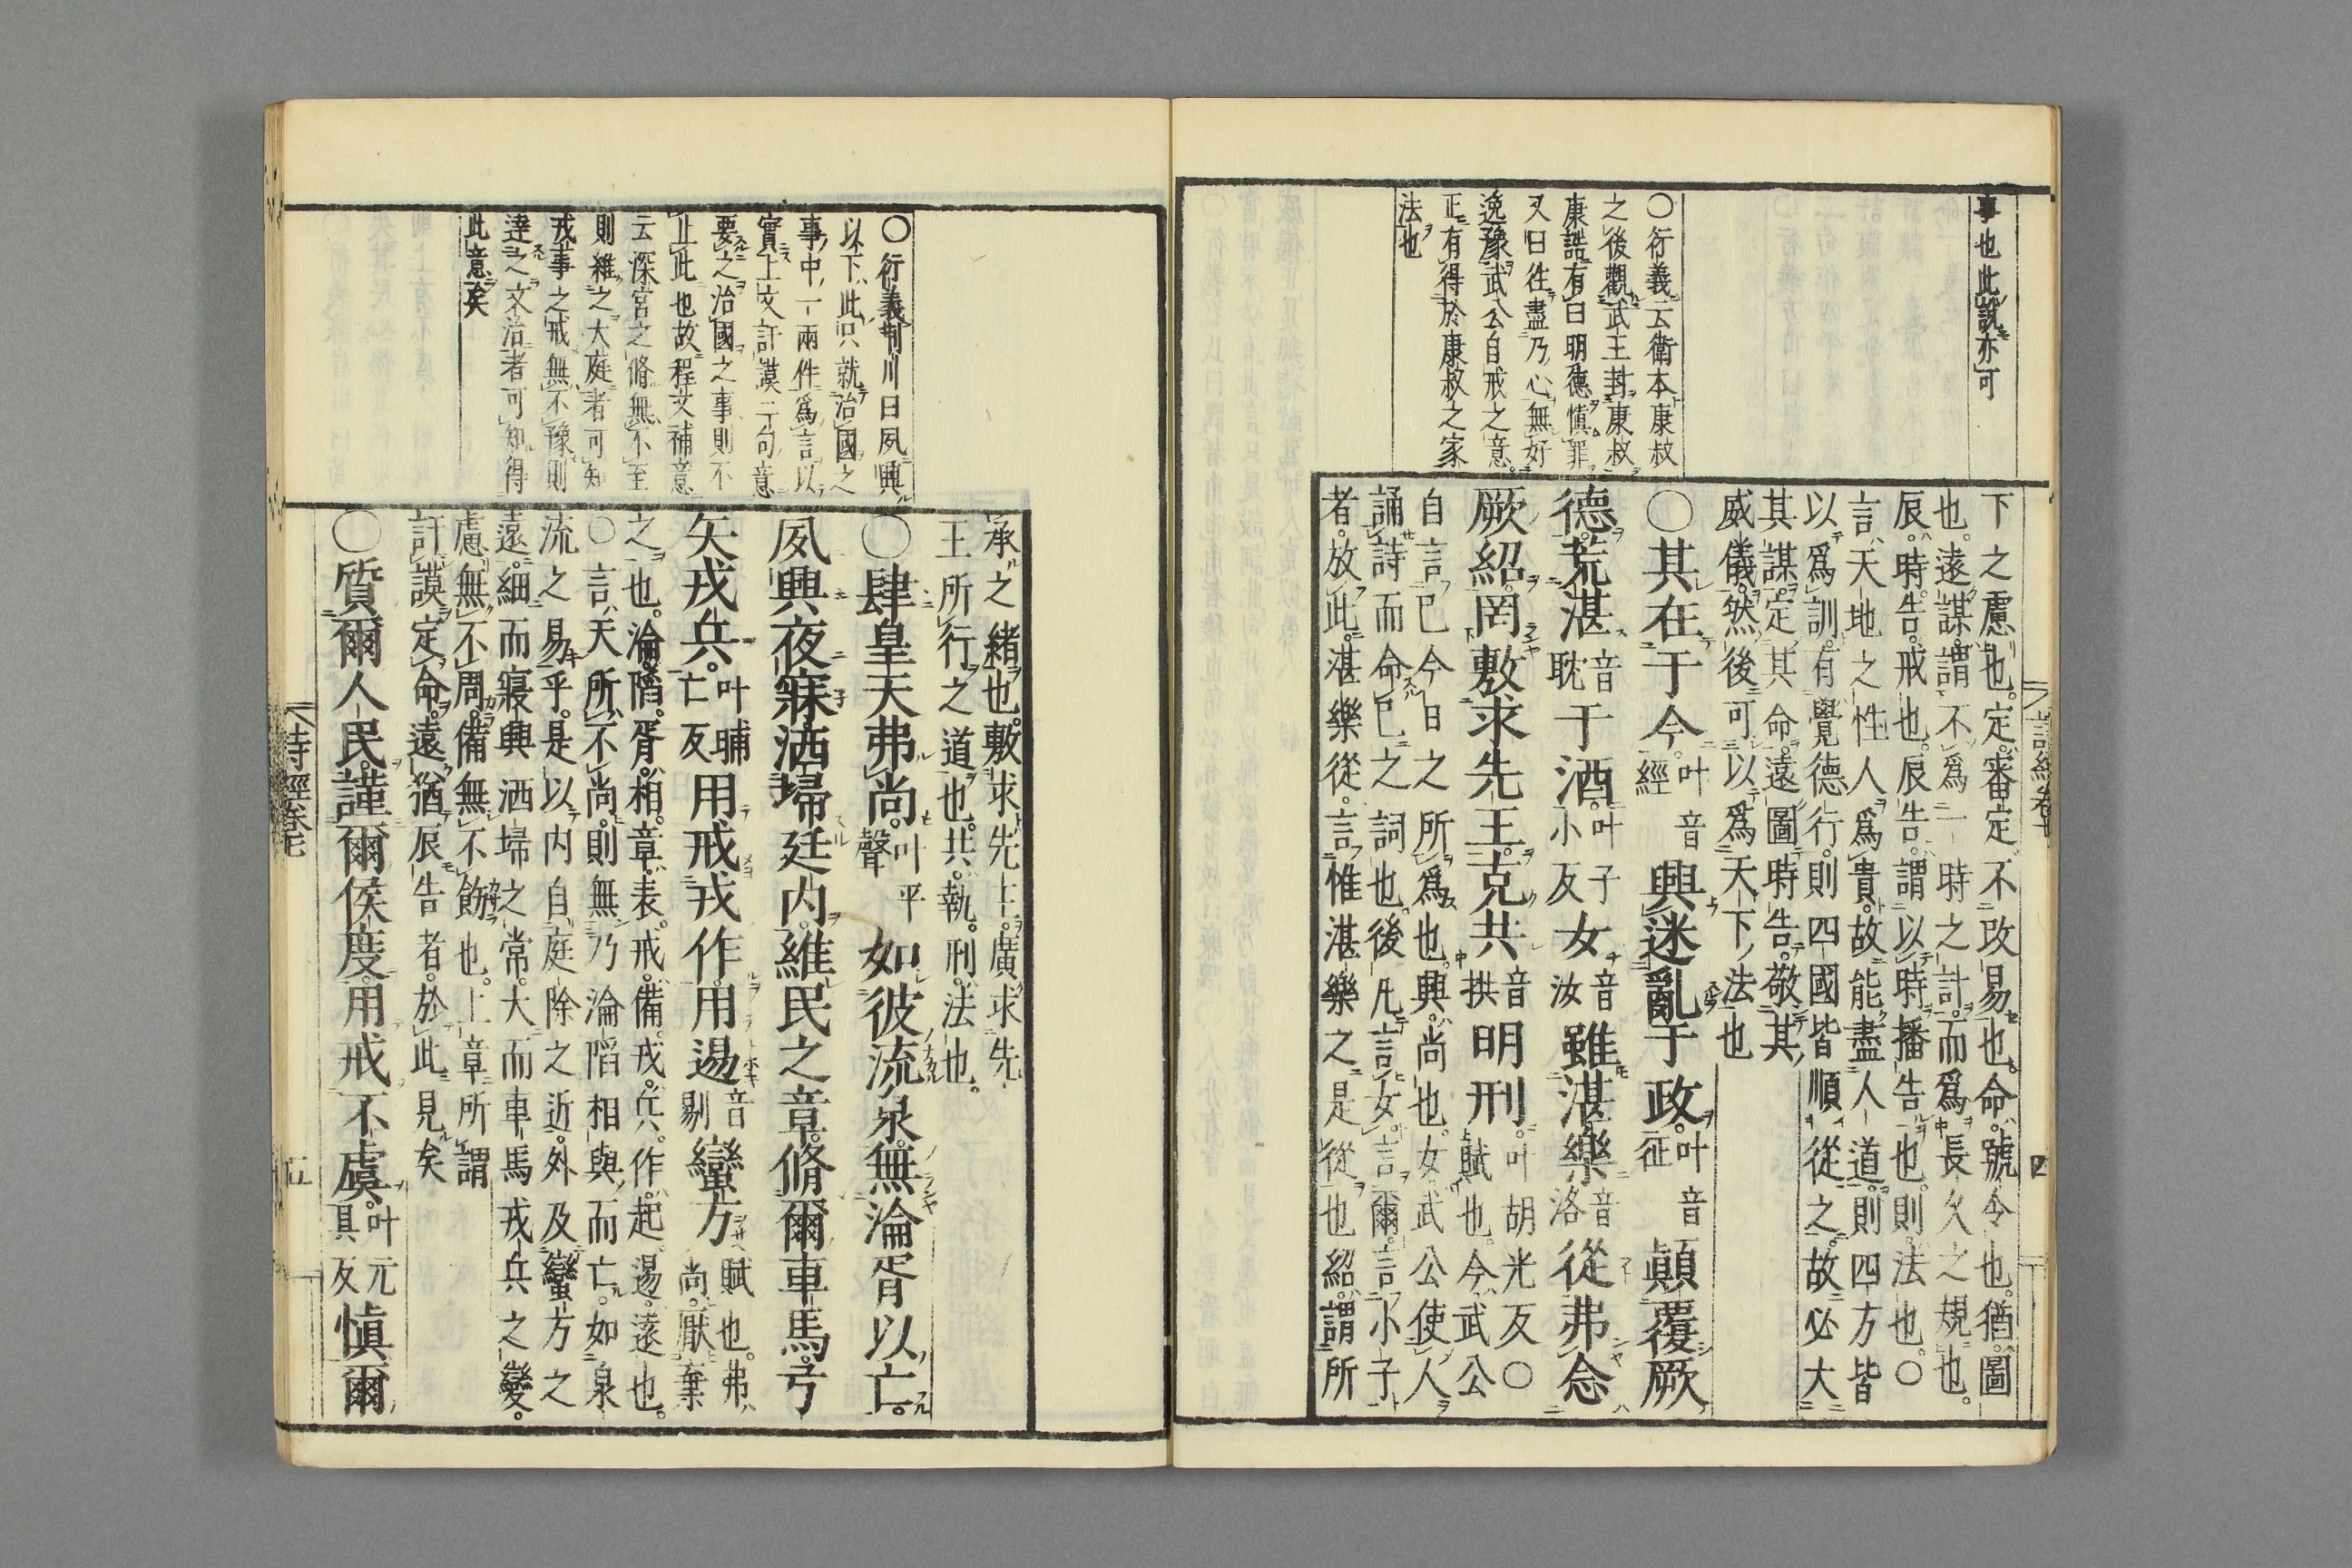 事也此說亦可
○衍義云衛本康叔
之後觀武王封康叔
康誥有曰明德慎罪
又曰往盡乃心無好
逸豫武公自戒之意
正有得於康叔之家
法也
下之慮也。定。審定不改易也。命。號令也。猶。圖
也。遠謀。謂不爲一時之計。而爲長久之規也。
辰。時。告。戒也。辰告。謂以時播告也。則。法也。○
言天地之性人爲貴。故能盡人道。則四方皆
以爲訓。有覺德行。則四國皆順從之。故必大
其謀。定其命。遠圖時告。敬其
威儀。然後可以爲天下法也
○其在于今。叶音經興迷亂于政。叶音征顛覆厥
德。荒湛音耽于酒。叶子小反女音汝雖湛樂音洛從弗念
厥紹。罔敷求先王。克共音拱明刑。叶胡光反○賦也。今。武公
自言已今日之所爲也。興。尚也。女。武公使人
誦詩而命已之詞也。後凡言女。言爾。言小子
者。放此。湛樂從。言惟湛樂之是從也。紹。謂所
詩經卷七
四
○衍義荆川曰夙興
以下此只就治國之
事中一兩件爲言以
實上文訏謨二句意
要之治國之事則不
止此也故程文補意
云深宮之脩無不至
則維之大庭者可知
戎事之戒無不豫則
達之文治者可知得
此意矣
承之緒也。敷求先王。廣求先
王所行之道也。共。執。刑。法也。
○肆皇天弗尚。叶平聲如彼流泉。無淪胥以亡。
夙興夜寐。洒埽廷内。維民之章。脩爾車馬。弓
矢戎兵。叶晡亡反用戒戎作。用逷音剔蠻方賦也。弗尚。厭棄
之也。淪。陷。胥。相。章。表。戒。備。戎。兵。作。起。逷。遠也。
○言天所不尚。則無乃淪陷相與而亡。如泉
流之易乎。是以内自庭除之近。外及蠻方之
遠。細而寢興洒埽之常。大而車馬戎兵之變。
慮無不周。備無不飭也。上章所謂
訏謨定命。遠猶辰告者。於此見矣
○質爾人民。謹爾侯度。用戒不虞。叶元具反慎爾
詩經卷七
五